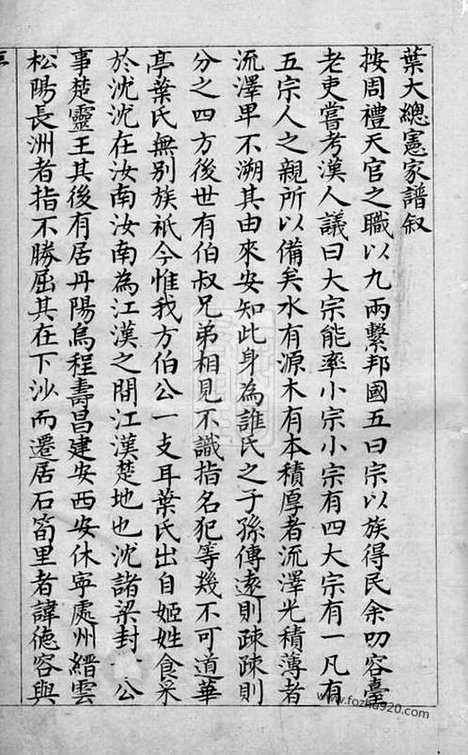 葉大總憲家譜叙
按周禮天官之職以九兩繫邦國五曰宗以族得民余叨容臺
老吏嘗考漢人議曰大宗能率小宗小宗有四大宗有一凡有
五宗人之親所以備矣水有源木有本積厚者流澤光積薄者
流澤早不溯其由來安知此身為誰氏之子孫傳遠則疎疎則
分之四方後世有伯叔兄弟相見不識指名犯等幾不可道華
亭葉氏無别族祇今惟我方伯公一支耳葉氏出自姬姓食采
於沈沈在汝南汝南為江漢之間江漢楚地也沈諸梁封 公
事楚靈王其後有居丹陽烏程壽昌建安西安休寧處州縉雲
松陽長洲者指不勝屈其在下沙而遷居石筍里者諱德容與
www.fozhu920.com